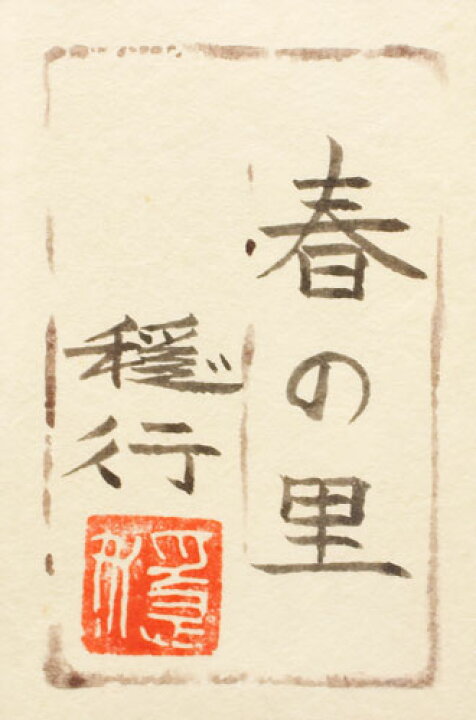 春の里
穏行